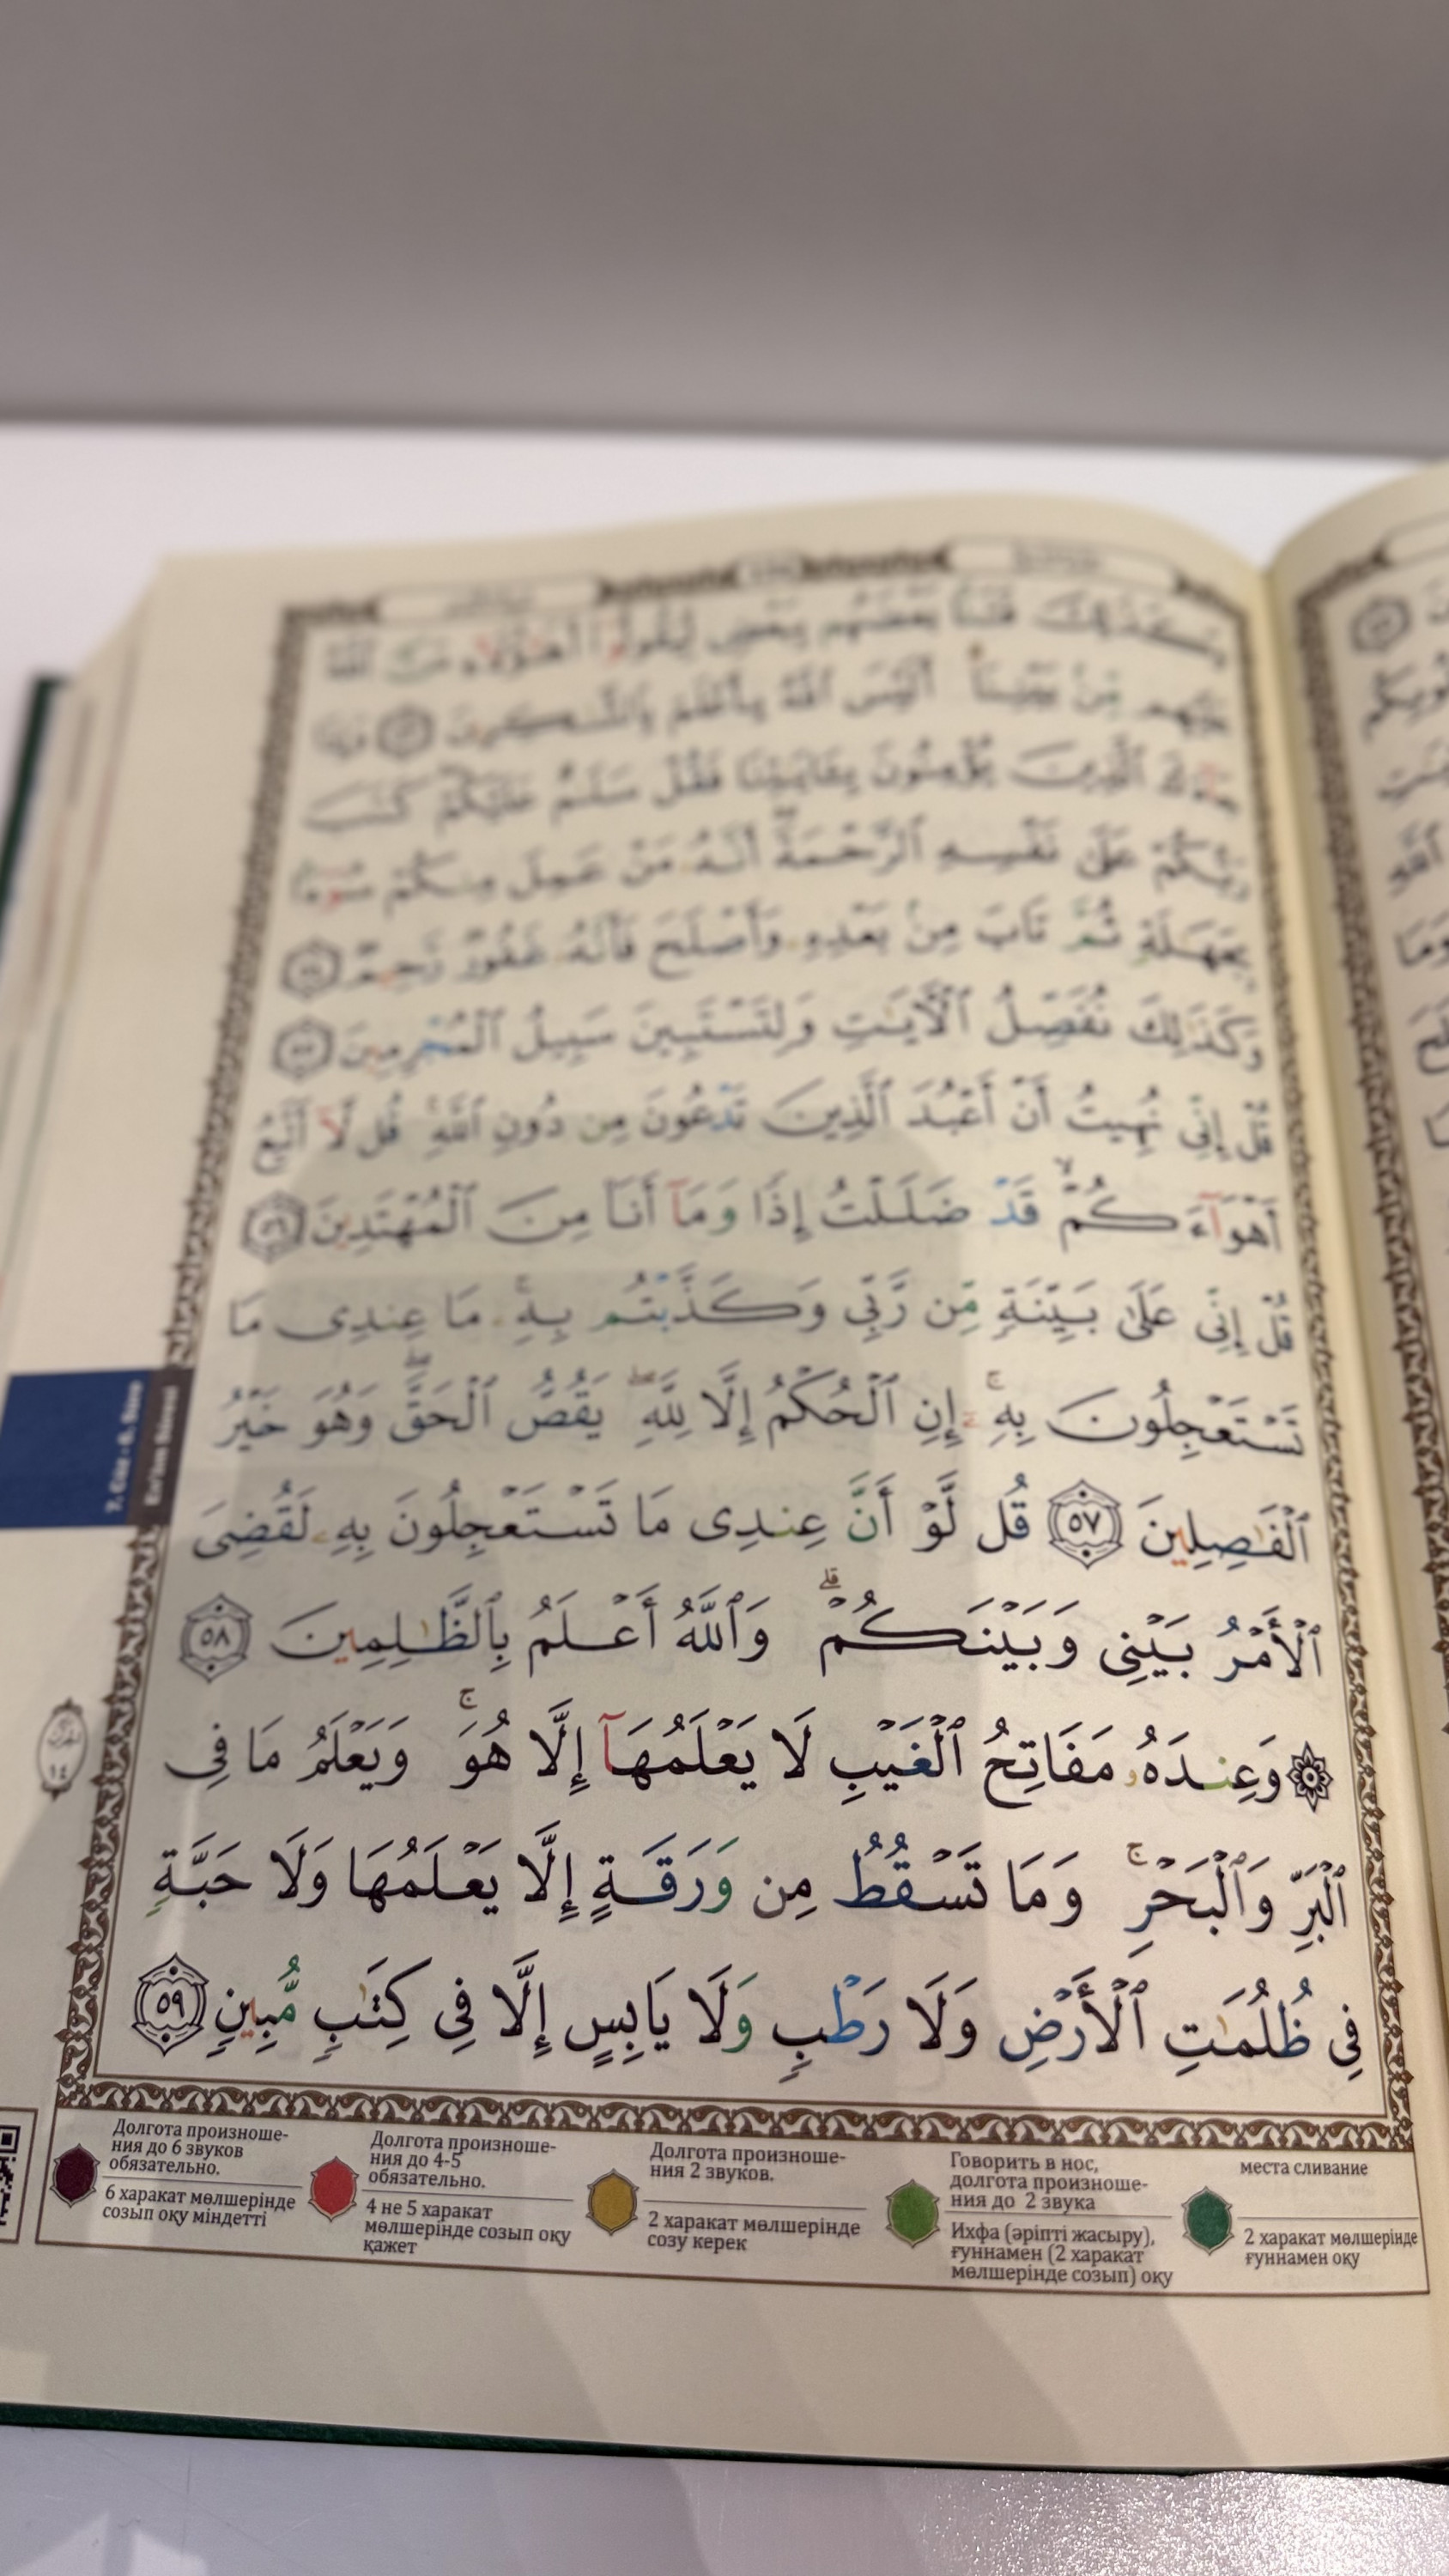 وَكَذَٰلِكَ فَتَنَّا بَعْضَهُم بِبَعْضٍ لِّيَقُولُوٓا۟ أَهَـٰٓؤُلَآءِ مَنَّ ٱللَّهُ
عَلَيْهِم مِّنۢ بَيْنِنَآ ۗ أَلَيْسَ ٱللَّهُ بِأَعْلَمَ بِٱلشَّـٰكِرِينَ ٥٣ وَإِذَا
جَآءَكَ ٱلَّذِينَ يُؤْمِنُونَ بِـَٔايَـٰتِنَا فَقُلْ سَلَـٰمٌ عَلَيْكُمْ ۖ كَتَبَ
رَبُّكُمْ عَلَىٰ نَفْسِهِ ٱلرَّحْمَةَ ۖ أَنَّهُۥ مَنْ عَمِلَ مِنكُمْ سُوٓءًۢا
بِجَهَـٰلَةٍ ثُمَّ تَابَ مِنۢ بَعْدِهِۦ وَأَصْلَحَ فَأَنَّهُۥ غَفُورٌ رَّحِيمٌ ٥٤
وَكَذَٰلِكَ نُفَصِّلُ ٱلْـَٔايَـٰتِ وَلِتَسْتَبِينَ سَبِيلُ ٱلْمُجْرِمِينَ ٥٥
قُلْ إِنِّى نُهِيتُ أَنْ أَعْبُدَ ٱلَّذِينَ تَدْعُونَ مِن دُونِ ٱللَّهِ ۚ قُل لَّآ أَتَّبِعُ
أَهْوَآءَكُمْ ۙ قَدْ ضَلَلْتُ إِذًا وَمَآ أَنَا۠ مِنَ ٱلْمُهْتَدِينَ ٥٦
قُلْ إِنِّى عَلَىٰ بَيِّنَةٍ مِّن رَّبِّى وَكَذَّبْتُم بِهِۦ ۚ مَا عِندِى مَا
تَسْتَعْجِلُونَ بِهِۦٓ ۚ إِنِ ٱلْحُكْمُ إِلَّا لِلَّهِ ۖ يَقُصُّ ٱلْحَقَّ ۖ وَهُوَ خَيْرُ
ٱلْفَـٰصِلِينَ ٥٧ قُل لَّوْ أَنَّ عِندِى مَا تَسْتَعْجِلُونَ بِهِۦ لَقُضِىَ
ٱلْأَمْرُ بَيْنِى وَبَيْنَكُمْ ۗ وَٱللَّهُ أَعْلَمُ بِٱلظَّـٰلِمِينَ ٥٨
۞ وَعِندَهُۥ مَفَاتِحُ ٱلْغَيْبِ لَا يَعْلَمُهَآ إِلَّا هُوَ ۚ وَيَعْلَمُ مَا فِى
ٱلْبَرِّ وَٱلْبَحْرِ ۚ وَمَا تَسْقُطُ مِن وَرَقَةٍ إِلَّا يَعْلَمُهَا وَلَا حَبَّةٍ
فِى ظُلُمَـٰتِ ٱلْأَرْضِ وَلَا رَطْبٍ وَلَا يَابِسٍ إِلَّا فِى كِتَـٰبٍ مُّبِينٍ ٥٩
Долгота произноше-
ния до 6 звуков
обязательно.
6 харакат мөлшерінде
созып оқу міндетті
Долгота произноше-
ния до 4-5
обязательно.
4 не 5 харакат
мөлшерінде созып оқу
қажет
Долгота произноше-
ния 2 звуков.
2 харакат мөлшерінде
созу керек
Говорить в нос,
долгота произноше-
ния до 2 звука
Ихфа (әріпті жасыру),
ғуннамен (2 харакат
мөлшерінде созып) оқу
места сливание
2 харакат мөлшерінде
ғуннамен оқу